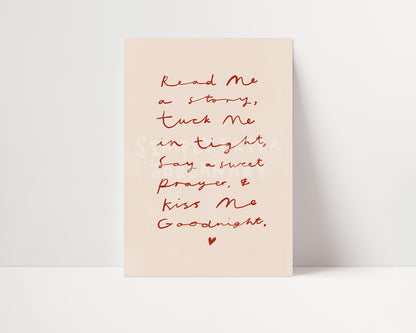 Read Me
a story,
tuck Me
in tight,
Say a sweet
prayer, &
Kiss Me
Goodnight.